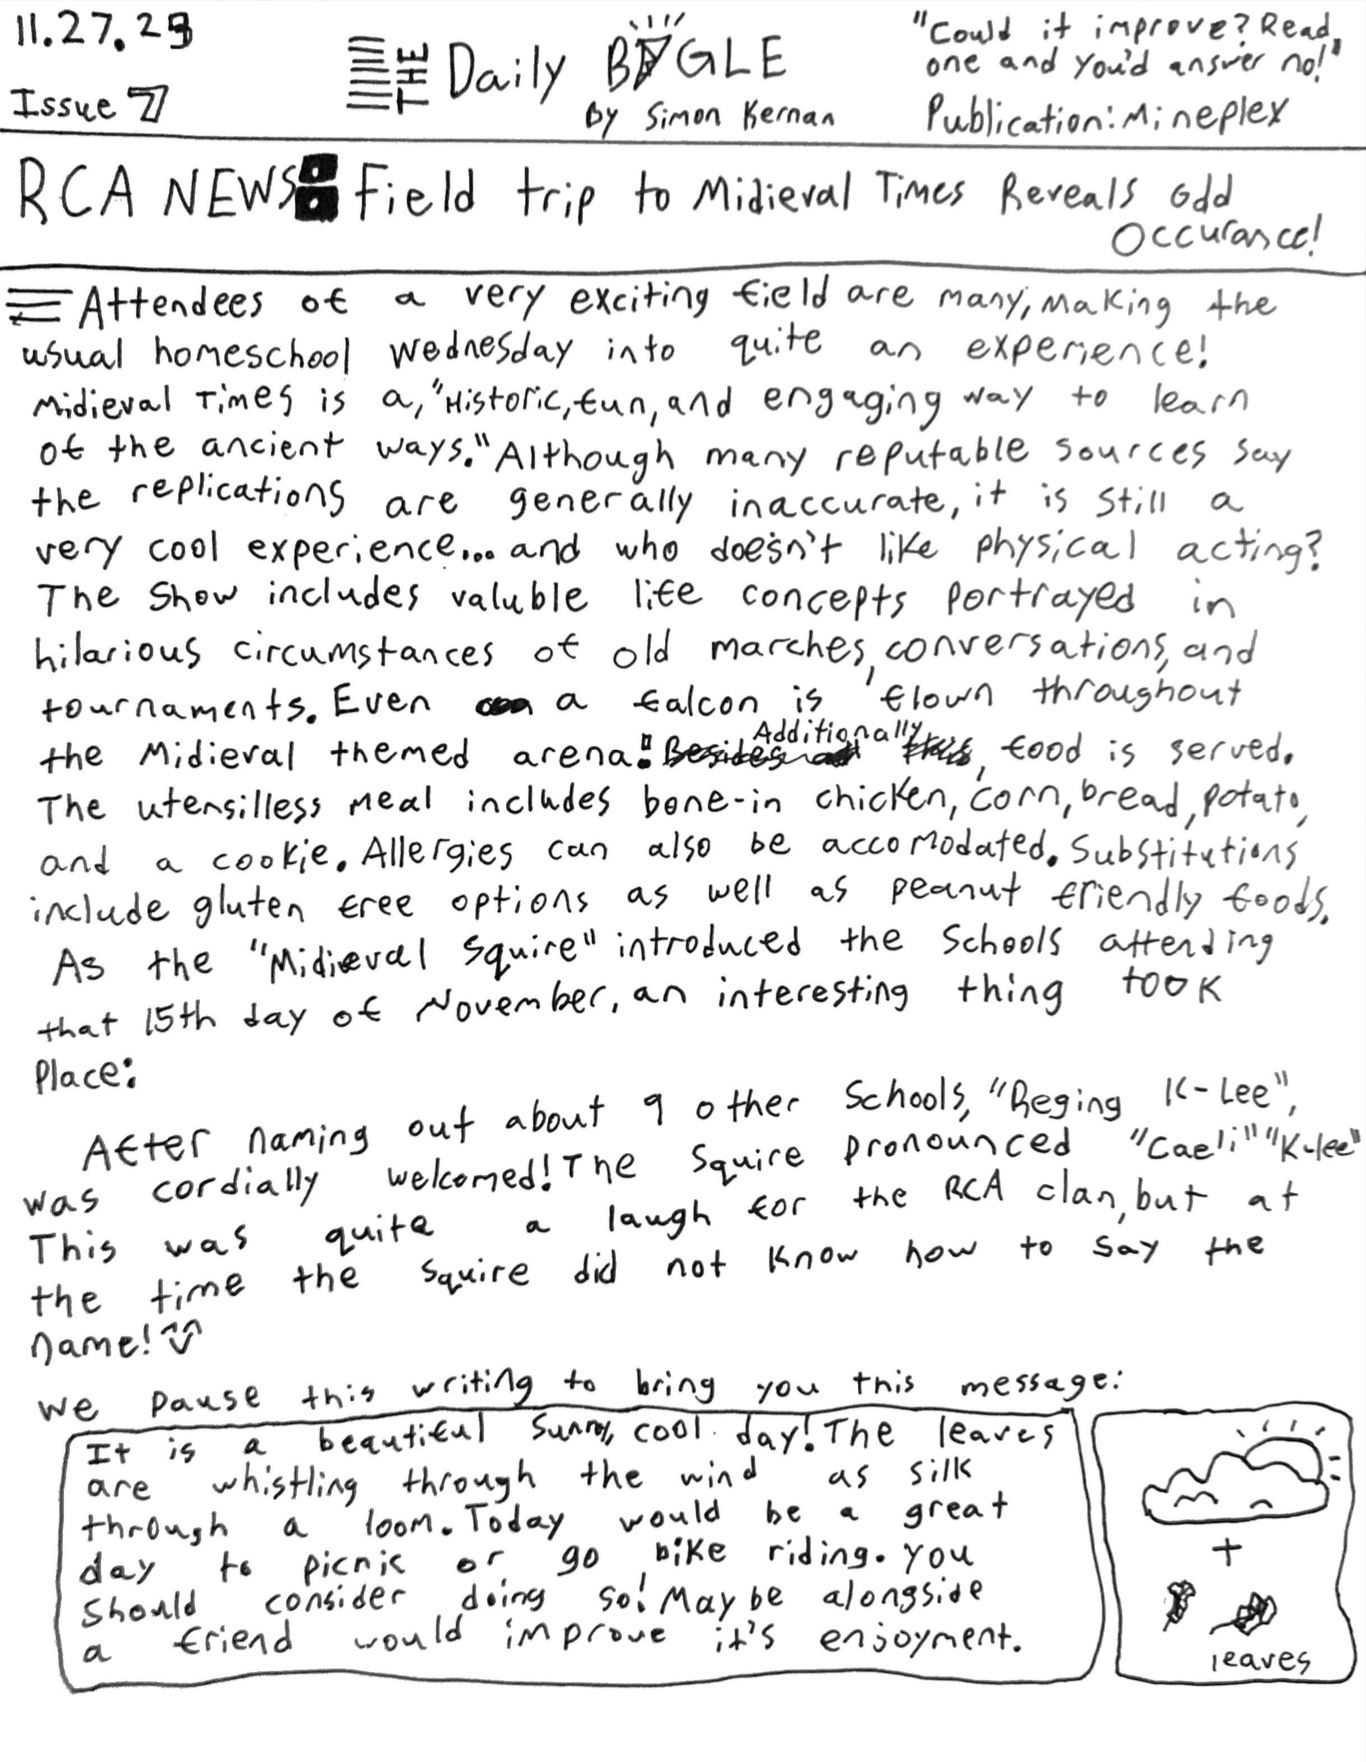 11.27.23
Issue 7
THE Daily BUGLE
By Simon Kernan
"Could it improve? Read
one and you'd answer no!"
Publication: Mineplex
RCA NEWS: Field trip to Midieval Times Reveals Odd
Occurance!
Attendees of a very exciting field are many, making the
usual homeschool Wednesday into quite an experience!
Midieval Times is a, "Historic, fun, and engaging way to learn
of the ancient ways." Although many reputable sources say
the replications are generally inaccurate, it is still a
very cool experience... and who doesn't like physical acting?
The Show includes valuble life concepts portrayed in
hilarious circumstances of old marches, conversations, and
tournaments. Even a falcon is flown throughout
the Midieval themed arena! Additionally, food is served.
The utensilless meal includes bone-in chicken, corn, bread, potato,
and a cookie. Allergies can also be accomodated. Substitutions
include gluten free options as well as peanut friendly foods.
As the "Midieval Squire" introduced the Schools attending
that 15th day of November, an interesting thing took
Place:
After naming out about 9 other Schools, "Reging K-Lee",
was cordially welcomed! The Squire pronounced "Caeli" "K-lee"
This was quite a laugh for the RCA clan, but at
the time the Squire did not know how to say the
name!
We pause this writing to bring you this message:
It is a beautiful sunny, cool day! The leaves
are whistling through the wind as silk
through a loom. Today would be a great
day to picnic or go bike riding. You
should consider doing so! Maybe alongside
a friend would improve it's enjoyment.
+
leaves